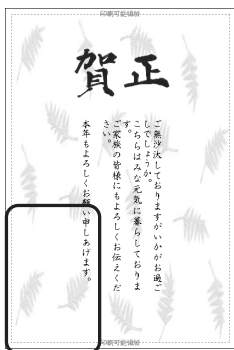 印刷可能領域
賀正
ご無沙汰しておりますがいかがお過ご
しでしょうか。
こちらはみな元気に暮らしておりま
す。
ご家族の皆様にもよろしくお伝えくだ
さい。
本年もよろしくお願い申しあげます。
印刷可能領域